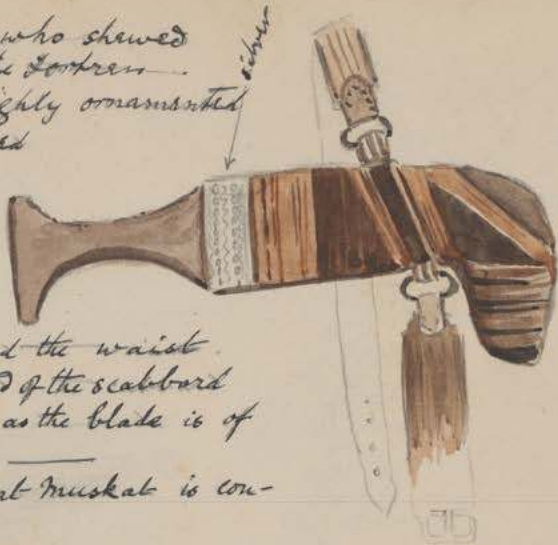 who shewed
silver
e Fortress
ighly ornamented
ed
d the waist
d of the scabbord
as the blade is of
at Muskat is con-